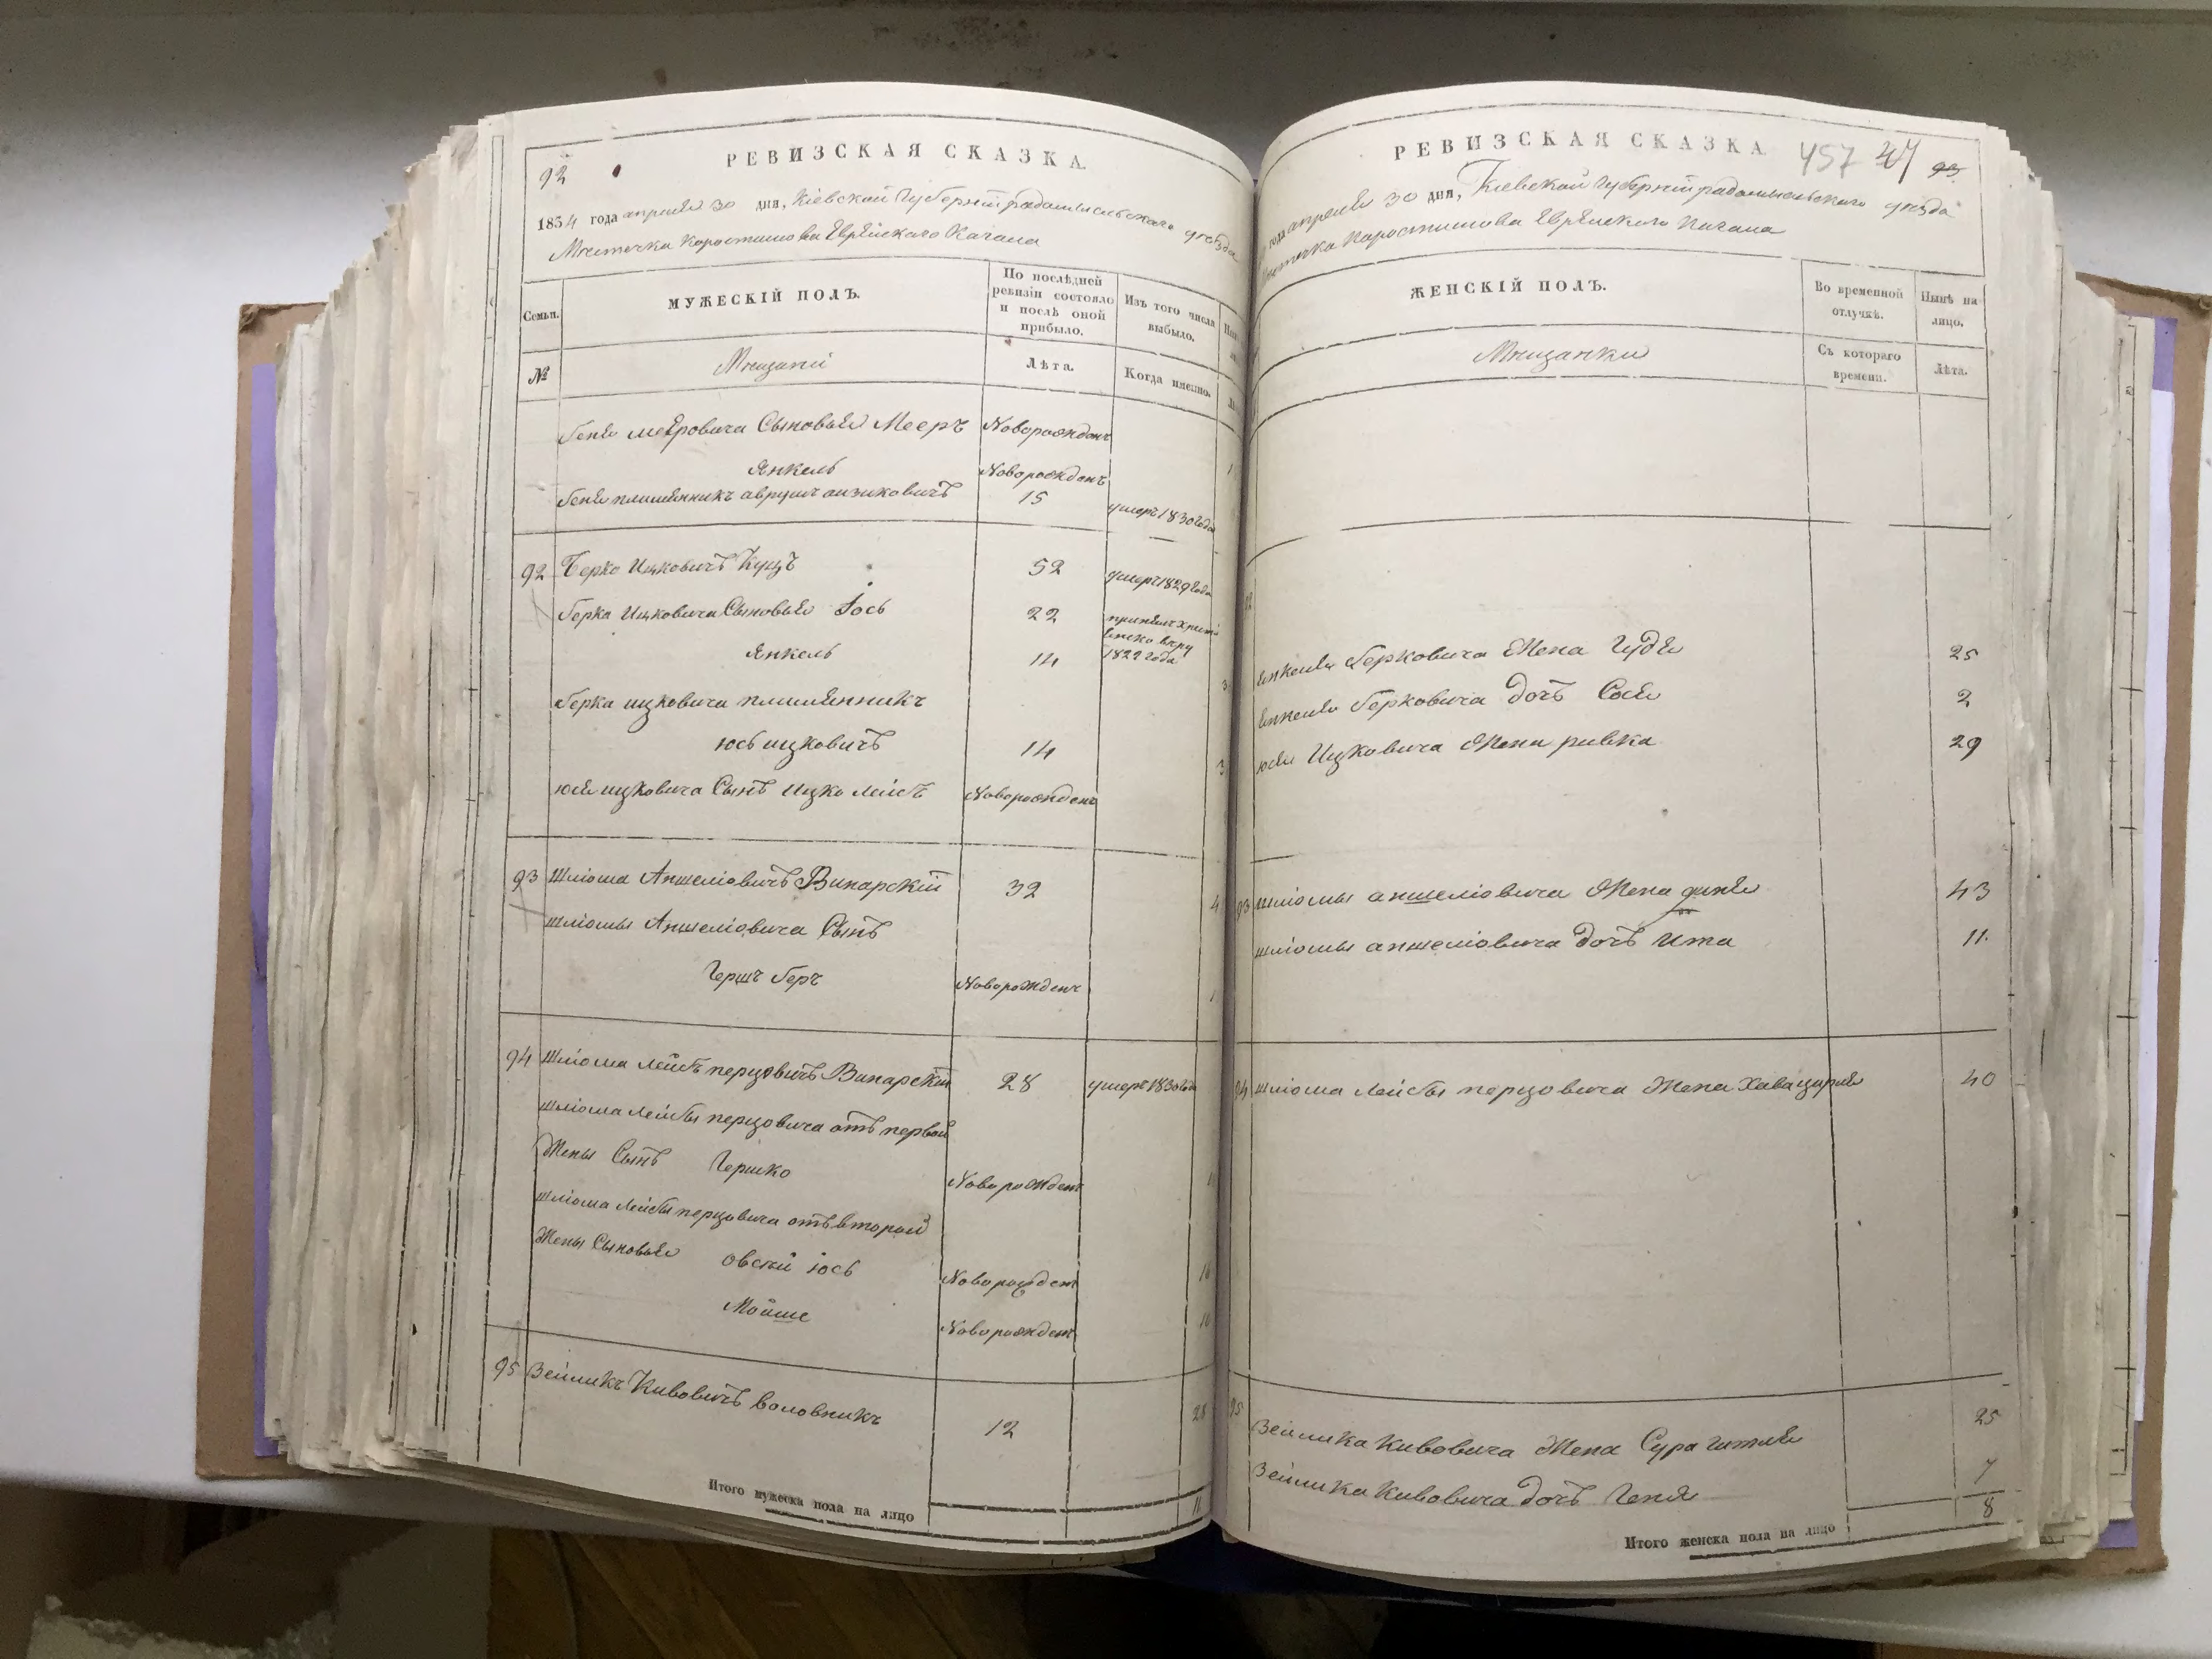 92
РЕВИЗСКАЯ СКАЗКА
1834 года апреля 30 дня, Кіевской Губерніи радомысльского уезда
Местечка Коростишова Еврейского Кагала
Семьи.
МУЖЕСКІЙ ПОЛЪ.
По послѣдней ревизіи состояло и послѣ оной прибыло.
Изъ того числа выбыло.
№
Мещане
Лѣта.
Когда именно.
Бени меѣровича Сыновья Мееръ Новорожденъ
Янкель Новорожденъ
Бени племянникъ аврумъ аизиковичъ 15 умеръ 1830 года
92 Берко Ицковичъ Куцъ 52 умеръ 1829 года
берка Ицковича Сыновья Іось 22 принялъ христі
янско веру
Янкель 14 1822 года
берка ицковича племянникъ
юсь ицковичъ 14
юся ицковича Сынъ Ицко Лейбъ Новорожденъ
93 Шліома Аншеліовичъ Винарскій 32
шліомы Аншеліовича Сынъ
Гершъ беръ Новорожденъ
94 Шліома Лейбъ перцовичъ Винарскій 28 умеръ 1830 года
шліома Лейбы перцовича отъ первой
Жены Сынъ Гершко Новорожденъ
шліома Лейбы перцовича отъ второй
Жены Сыновья овсѣй іось Новорожден
Мойше Новорожден
95 Зейликъ Кивовичъ воловникъ 12 28
Итого мужеска пола на лицо 11
РЕВИЗСКАЯ СКАЗКА 457 47 93
года апреля 30 дня, Кіевской Губерніи радомысльского уезда
Местечка Коростишова Еврейского Кагала
ЖЕНСКІЙ ПОЛЪ.
Во временной отлучкѣ.
Нынѣ на лицо.
Мещанки
Съ котораго времени.
Лѣта.
янкеля берковича Жена Гудя 25
янкеля берковича дочь Сося 2
юся Ицковича Жена ривка 29
93 шліомы аншеліовича Жена 43
шліомы аншеліовича дочь Ита 11.
94 шліома Лейбы перцовича Жена Хава ципря 40
95 Зейлика Кивовича Жена Сура Гитля 25
Зейлика Кивовича дочь Геня 7
Итого женска пола на лицо 8